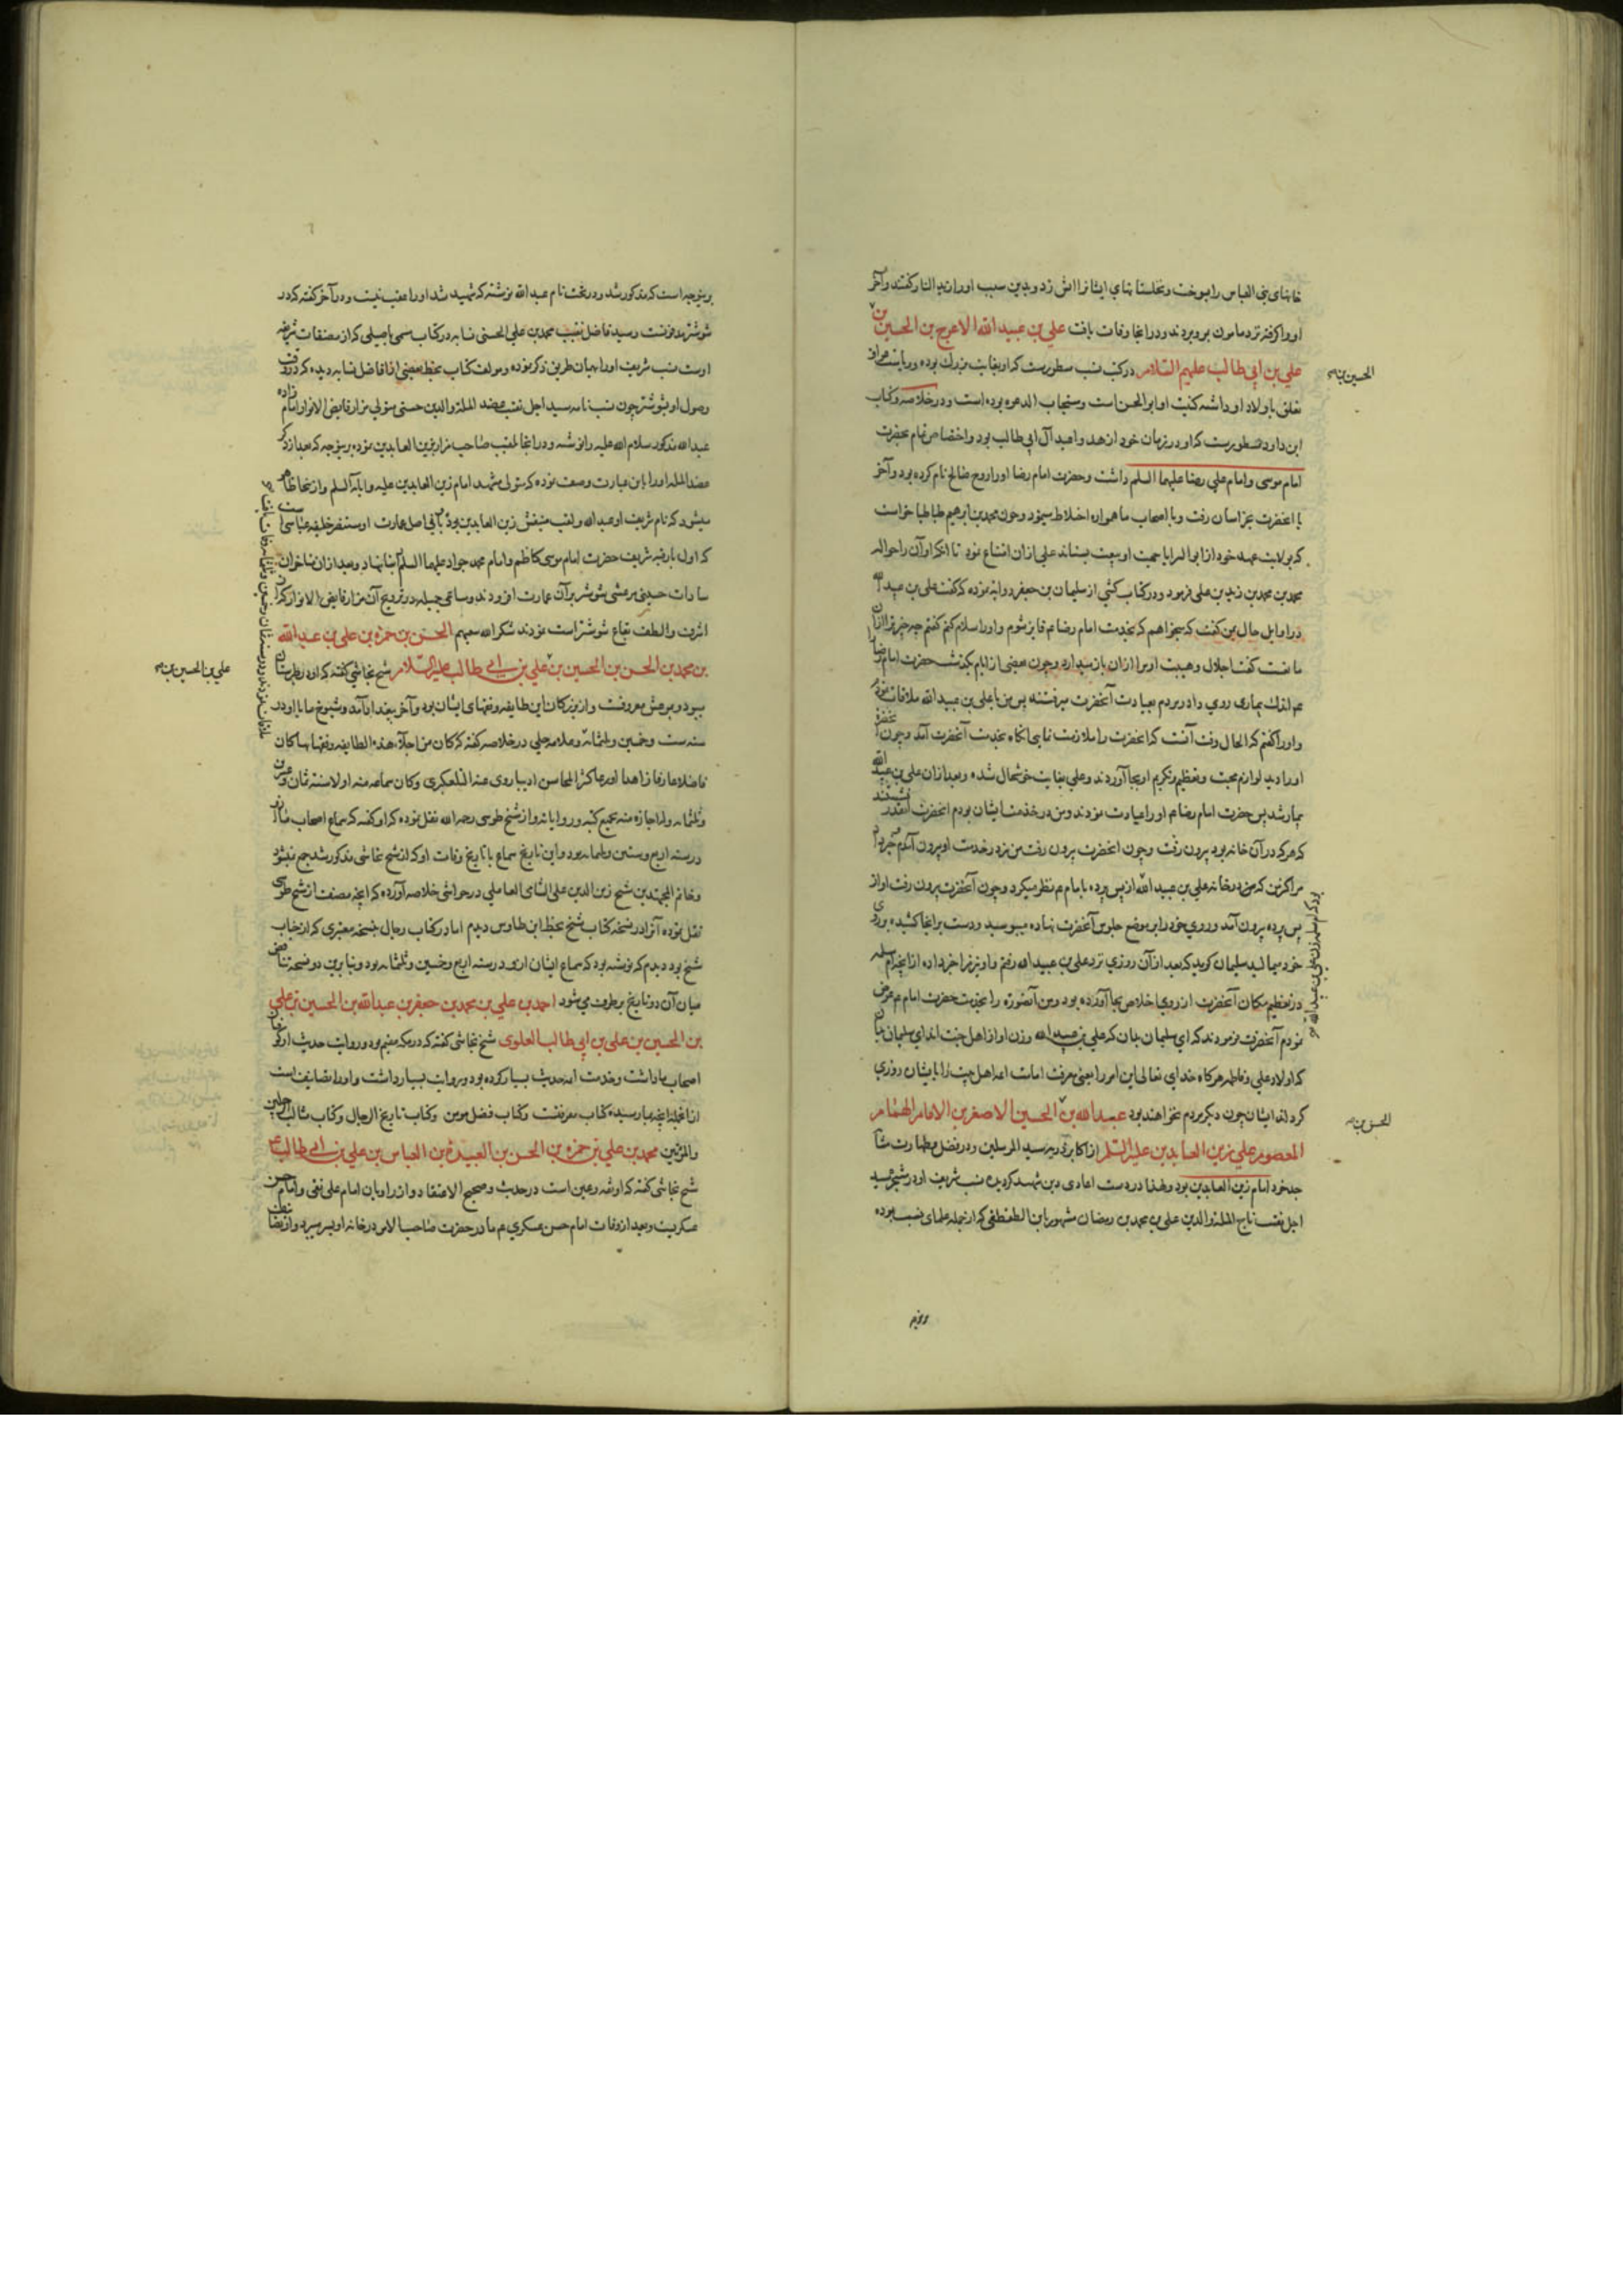 خانهای بنی العباس را بسوخت و نخلستانهای ایشانرا اش زد و بدین سبب اورا زید النار گفتند و آخر
اورا گرفته نزد مامون بمرو بردند و در انجا وفات یافت علي بن عبيد الله الاعرج بن الحسين بن
علي بن ابي طالب عليهم السلام در کتب نسب مسطورست که او بغایت بزرك بوده و ریاست عراق
تعلق باولاد او داشته کنیت او ابو الحسن است و مستجاب الدعوه بوده است و در خلاصه و کتاب
ابن داود مسطورست که او در زمان خود ازهد و اعبد آل ابی طالب بود و اختصاص تمام بحضرت
امام موسی و امام علي رضا عليهما السلم داشت و حضرت امام رضا اورا زوج صالح نام کرده بود و آخر
با انحضرت بخراسان رفت و با اصحاب ما همواره اختلاط مینمود و چون محمد بن ابرهیم طباطبا خواست
که بولایت عهد خود از ابو السرایا جهت او بیعت بستاند علی ازان امتناع نمود تا انکه او آن را حواله
محمد بن محمد بن زید بن علی فرمود و در کتاب کشی از سلیمان بن جعفر روایه نموده که گفت علی بن عبید الله
در اوایل حال بمن گفت که میخواهم که بخدمت امام رضا ع فایز شوم و اورا سلام کنم گفتم چه چیز ترا ازان
مانعست گفت اجلال و هیبت او مرا ازان باز میدارد و چون بعضی از ایام بگذشت حضرت امام رضا
ع اندك بیماری روی داد و مردم بعیادت آنحضرت میرفتند پس من با علی بن عبید الله ملاقات نمودم
و اورا گفتم که الحال وقت آنست که انحضرت را ملازمت نمایی انگاه بخدمت آنحضرت آمد و چون آنحضرت
اورا دید لوازم محبت و تعظیم و تکریم او بجا آوردند و علی بغایت خوشحال شد و بعد ازان علی بن عبید الله
بیمار شد پس حضرت امام رضا ع اورا عیادت نمودند و من در خدمت ایشان بودم انحضرت آنقدر نشستند
که هرکه در آن خانه بود بیرون رفت و چون انحضرت بیرون رفت من نیز در خدمت او بیرون آمدم
مرا کنیز که من در خانه علی بن عبید الله از پس پرده بامام ع نظر میکرد و چون آنحضرت بیرون رفت او از
پس پرده بیرون آمد و روي خود را بر موضع جلوس آنحضرت نهاده میبوسید و دست برانجا کشیده بر روی
خود میمالید سلیمان گوید که بعد از آن روزي نزد علی بن عبید الله رفتم و او نیز مرا خبر داد از انچه ام سلمه
در تعظیم مکان آنحضرت از روی اخلاص بجا آورده بود و من آنصورة را بخدمت حضرت امام ع عرض
نمودم آنحضرت فرمودند که ای سلیمان بدان که علي بن عبید الله و زن او از اهل جنت اند ای سلیمان بدان
که اولاد علی و فاطمه هرگاه خدای تعالی این امر را یعنی معرفت امامت اهل بیت را بایشان روزی
کرد اند ایشان چون دیگر مردم نخواهند بود عبيد الله بن الحسين الاصغر بن الامام الهمام
المعصوم علي زين العابدين عليه السلم از اکابر ذریه سید المرسلین و در فضل و طهارت
جد خود امام زین العابدین بود و لهذا در دست اعادی دین شهید گردیده نسب شریف او در شجره سید
اجل نقیب تاج الملة والدین علی بن محمد بن رمضان مشهور بابن الطقطقی که از جمله علمای نسب بوده
الحسين بن
الحسين بن
برینوجه است که مذکور شد و در تحت نام عبد الله نوشته که شهید شد اورا عقب نیست و در آخر گفته که در
شوشتر مدفونست و سید فاضل نقیب محمد بن علي الحسنی نسابه در کتاب مسمی باصیلی که از مصنفات شریفه
اوست نسب شریف اورا بهمان طریق ذکر نموده و مولف کتاب بخط بعضی از افاضل نسابه دیده که در وقت
وصول او بشوشتر چون نسب نامه سید اجل نقیب عضد الملة والدین حسنی متولی مزار فایض الانوار امام زاده
عبد الله مذکور سلام الله علیه را نوشته و در انجا لقب صاحب مزار زین العابدین نموده برینوجه که بعد از ذکر
عضد الملة اورا باین عبارت وصف نموده که متولی مشهد امام زین العابدین علیه و ابائه السلم و از انجا ظاهر
میشود که نام شریف او عبد الله و لقب منیفش زین العابدین بود و بانی اصل عمارت او مستنصر خلیفه عباسی است
که اول بار قبه شریف حضرت امام موسی کاظم و امام محمد جواد علیهما السلم بنا نهاد و بعد ازان
سادات حسینی مرعشی شوشتر برآن عمارت افزودند و مساعی جمیله در ترویج آن مزار فایض الانوار که از
اشرف و الطف بقاع شوشتر است نمودند شکر الله سعیهم الحسن بن حمزه بن علی بن عبد الله
بن محمد بن الحسن بن الحسين بن علي بن ابي طالب عليه السلام شیخ نجاشي گفته که او در طبرستان
میبود و بمرعش معروفست و از بزرگان این طایفه و فقهای ایشان بود و آخر ببغداد آمد و شیوخ ما با او در
سنه ست و خمسین و ثلثمائه و علامه حلی در خلاصه گفته که کان من اجلاء هذه الطایفه و فقهائها کان
فاضلا عارفا زاهدا اورعا کثیر المحاسن ادیبا روی عنه التلعکبری و کان سماعه منه اولا سنه ثمان و عشرین
و ثلثمائه و له اجازه منه بجمیع کتبه و روایاته و از شیخ طوسی رحمه الله نقل نموده که او گفته که سماع اصحاب ما ازو
در سنه اربع و ستین و ثلثمائه بود و این تاریخ سماع با تاریخ وفات او که از شیخ نجاشی مذکور شد جمع نمیشود
و خاتم المجتهدین شیخ زین الدین علی الشامی العاملی در حواشی خلاصه آورده که انچه مصنف از شیخ طوسی
نقل نموده آنرا در نسخه کتاب شیخ بخط ابن طاوس دیدم اما در کتاب رجال بنسخه معتبری که از جناب
شیخ بود دیدم که نوشته بود که سماع ایشان ازو در سنه اربع و خمسین و ثلثمائه بود و بنا برین دو نسخه تناقض
میان آن دو تاریخ برطرف می شود احمد بن علي بن محمد بن جعفر بن عبد الله بن الحسين بن علي
بن الحسين بن علي بن ابي طالب العلوی شیخ نجاشی گفته که در مکه مقیم بود و روایت حدیث از
اصحاب ما داشت و خدمت حدیث بسیار کرده بود و روایت بسیار داشت و اورا تصانیف است
از انجمله انچه بما رسیده کتاب معرفتست و کتاب فضل مومن و کتاب تاریخ الرجال و کتاب مثالب الرجلین
والمرتین محمد بن علي بن حمزه بن الحسن بن العبيدة بن العباس بن علي بن ابي طالب ع
شیخ نجاشی گفته که او ثقه و عین است در حدیث و صحیح الاعتقاد و از راویان امام علی نقی و امام حسن
عسکریست و بعد از وفات امام حسن عسکری ع مادر حضرت صاحب الامر در خانه او بسر میبرد و از
علي بن الحسين بن